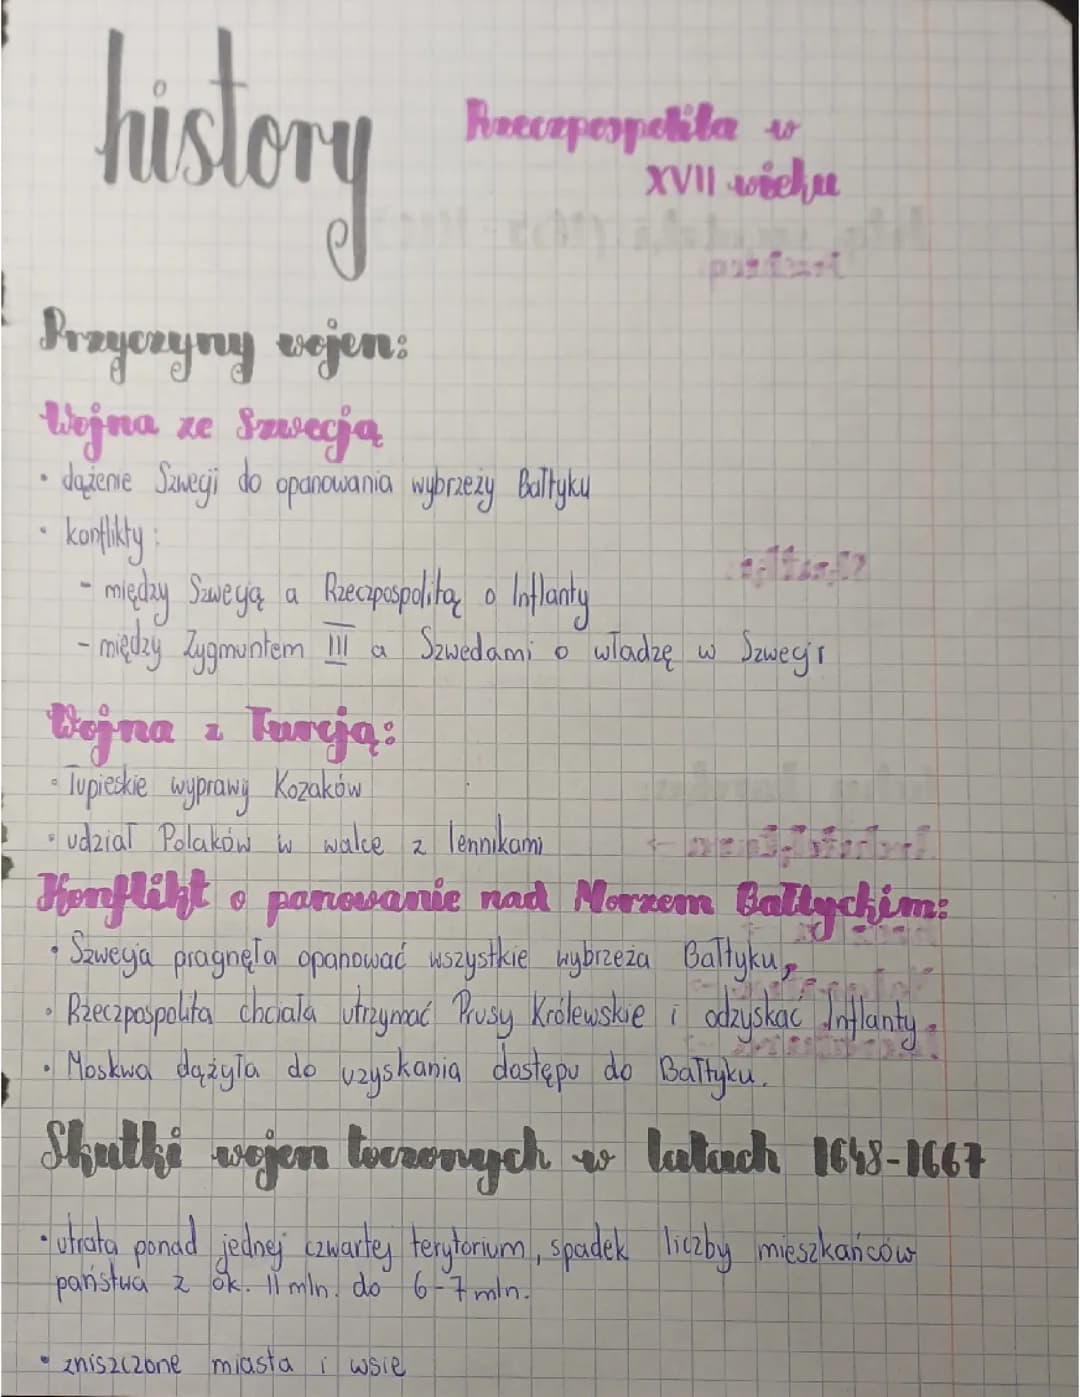 history
Rzeczpospolita w
XVII wieku
Przyczyny wojen:
Wojna ze Szwecją
• dążenie Szwecji do opanowania wybrzeży Bałtyku
• konflikty:
- między Szwecją a Rzeczpospolitą o Inflanty
- między Zygmuntem III a Szwedami o władzę w Szwecji
Wojna z Turcją:
• Łupieskie wyprawy Kozaków
• udział Polaków w walce z lennikami
Konflikt o panowanie nad Morzem Bałtyckim:
• Szwecja pragnęła opanować wszystkie wybrzeża Bałtyku,
• Rzeczpospolita chciała utrzymać Prusy Królewskie i odzyskać Inflanty.
• Moskwa dążyła do uzyskania dostępu do Bałtyku.
Skutki wojen toczonych w latach 1648-1667
• utrata ponad jednej czwartej terytorium, spadek liczby mieszkańców
państwa z ok. 11 mln. do 6-7 mln.
• zniszczone miasta i wsie